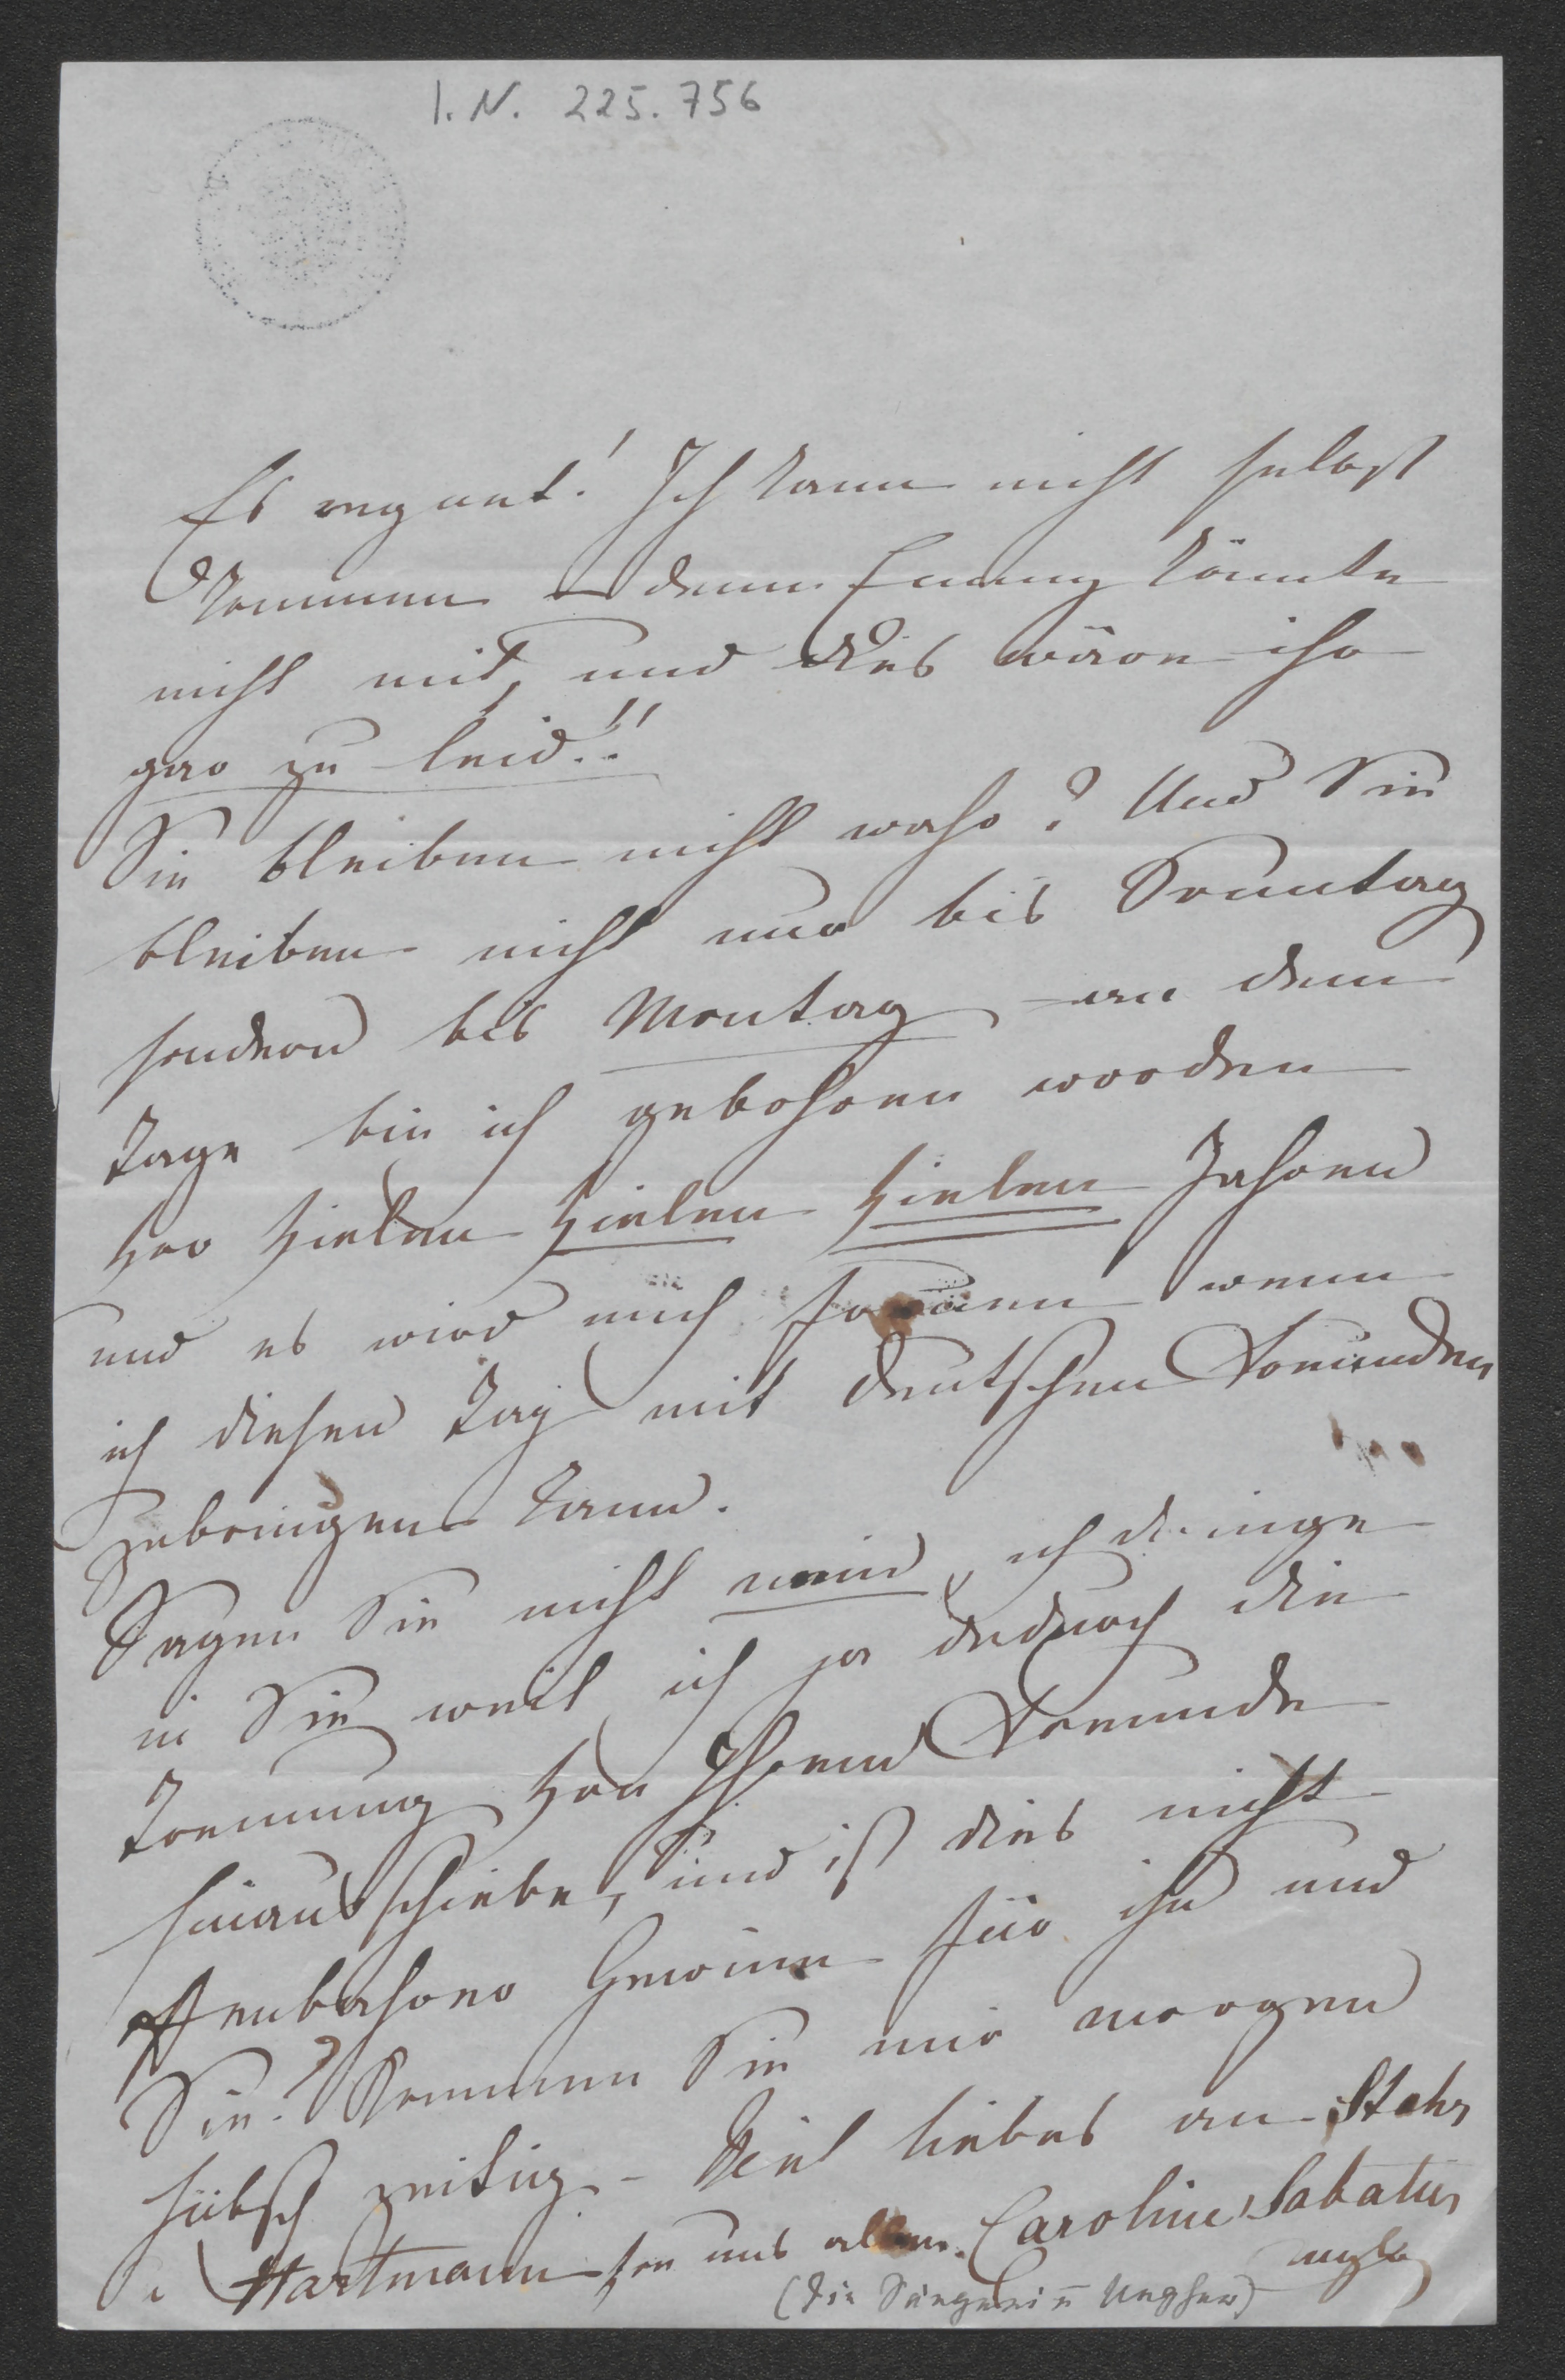 I.N. 225.756
Es regnet! Ich kann nicht selbst
kommen – denn Emmy könnte
nicht mit, und dies wäre ihr
gar zu leid!!
Sie bleiben nicht wahr? Und Sie
bleiben nicht nur bis Sonntag
sondern bis Montag an dem
Tage bin ich gebohren worden
vor vielen vielen vielen Jahren
und es wird mich freuen wenn
ich diesen Tag mit deutschen Freunden
zubringen kann.
Sagen Sie nicht nein, ich dringe
in Sie weil ich ja dadurch die
Trennung von Ihrem Freunde
hinausschiebe, und ist dies nicht
offenbahrer Gewinn für ihn und
Sie? Kommen Sie mir morgen
hübsch zeitig – Viel liebes an Stahr
u Hartmann von uns allen. Caroline Sabatier
Ungher
(die Sängerin Ungher)